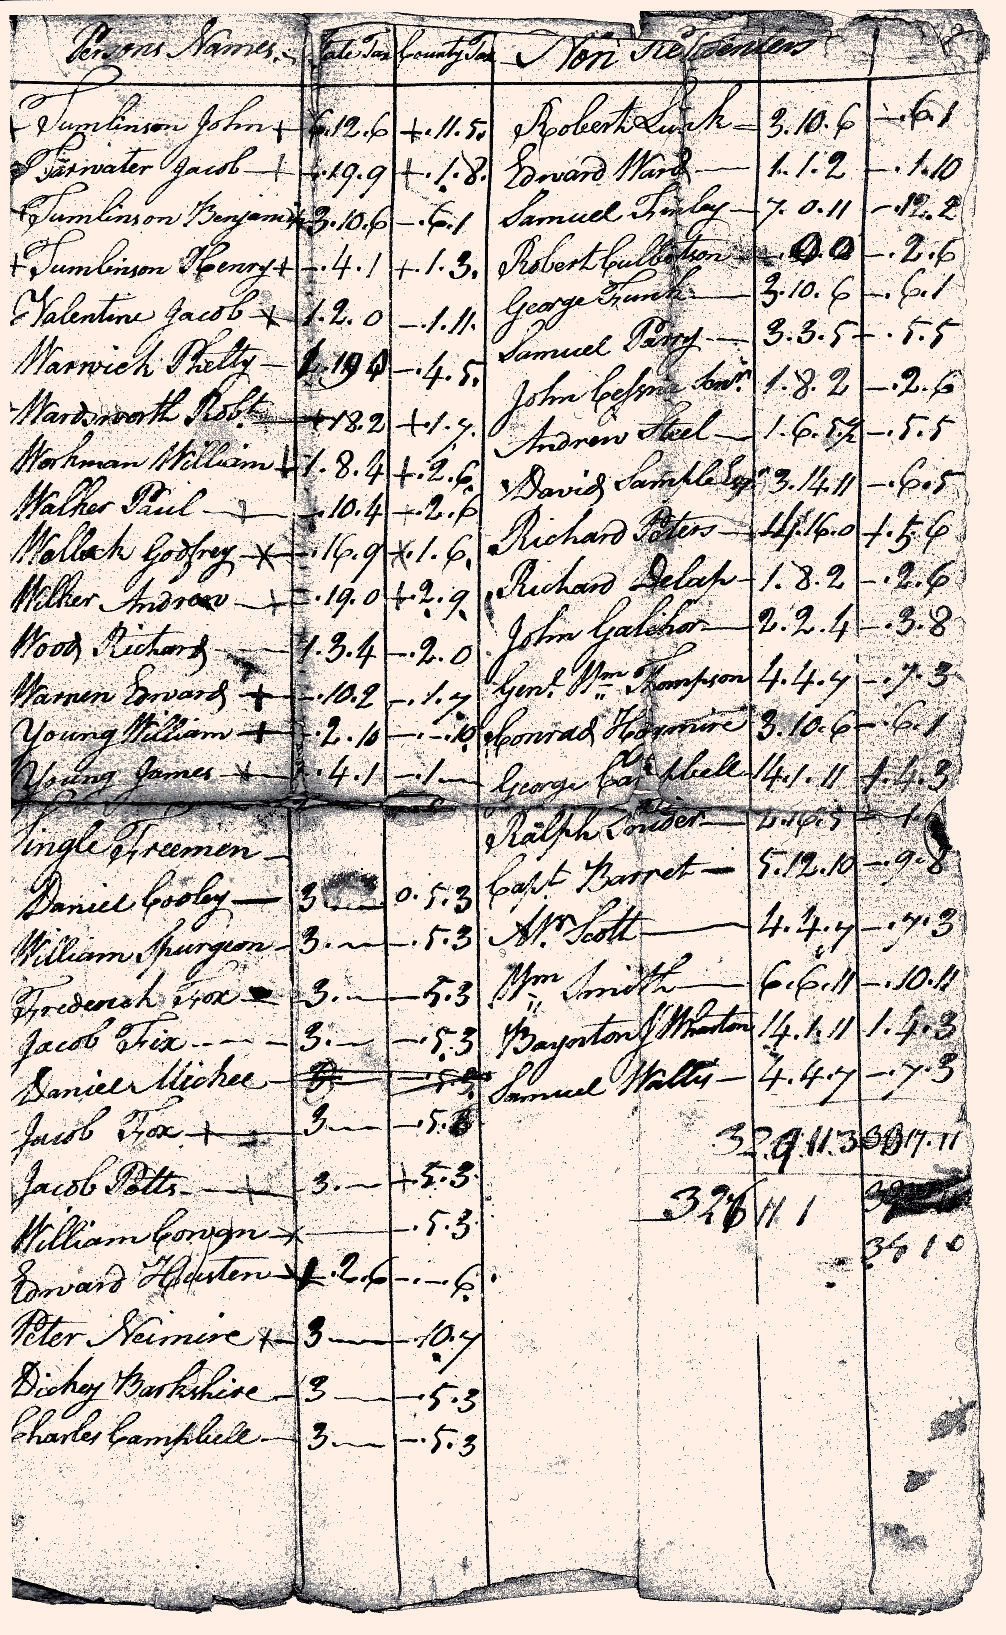 Persons Names. State Tax County Tax
Tumlinson John + 6.12.6 + .11.5.
Tarwater Jacob + .19.9 + .1.8.
Tumlinson Benjamin 3.10.6 - .6.1
+ Tumlinson Henry + - .4.1 + .1.3.
Valentine Jacob + 1.2.0 - .1.11.
Warwick Phelty - .4.5.
Wardsworth Robt. + 18.2 + .1.7.
Workman William + 1.8.4 + .2.6.
Walker Paul + .10.4 - .2.6
Godfrey x .16.9 x .1.6.
Wilker Andrew + .19.0 + 2.9
Wood Richard 1.3.4 - .2.0
Warnen Edward + - .10.2 - .1.7
Young William + .2.10 - . - .10
Young James x .4.1 - .1 -
Single Freemen -
Daniel Cooley - 3 0.5.3
William Spurgeon - 3. - - .5.3
Frederick Fox 3. - - 5.3
Jacob Fix - - - - 3. - - .5.3
Daniel Michee - 3 - .5.3
Jacob Fox + 3. - - .5.3
Jacob Potts + 3. - + 5.3
William x - - .5.3
Edward x 1.2.6 - . - .6.
Peter Neimire + 3 - - .10.7
Dickey Barkshire - 3 - - .5.3
Charles Campbell - 3. - - .5.3
Non Residenters
Robert - 3.10.6 - .6.1
Edward Ward - 1.1.2 - .1.10
Samuel Finley - 7.0.11 - .12.2
Robert Culbertson - .2.6
George Funk - 3.10.6 - .6.1
Samuel Parry - 3.3.5 - .5.5
John Cessna Senr. 1.8.2 - .2.6
Andrew Steel - 1.6. - .5.5
David Sample Esqr. 3.14.11 - .6.5
Richard Peters - 14.16.0 1.5.6
Richard Delap - 1.8.2 - .2.6
John Galihor - 2.2.4 - .3.8
Genl. Wm. Thompson 4.4.7 - .7.3
Conrad Hogmire 3.10.6 - .6.1
George Campbell 14.1.11 1.4.3
Ralph Snider -
Capt Barret - 5.12.10 - .9.8
Mr. Scott - 4.4.7 - .7.3
Wm Smith - 6.6.11 - .10.11
Baynton & Wharton 14.1.11 1.4.3
Samuel Wallis - 4.4.7 - .7.3
11.3
326 11 1